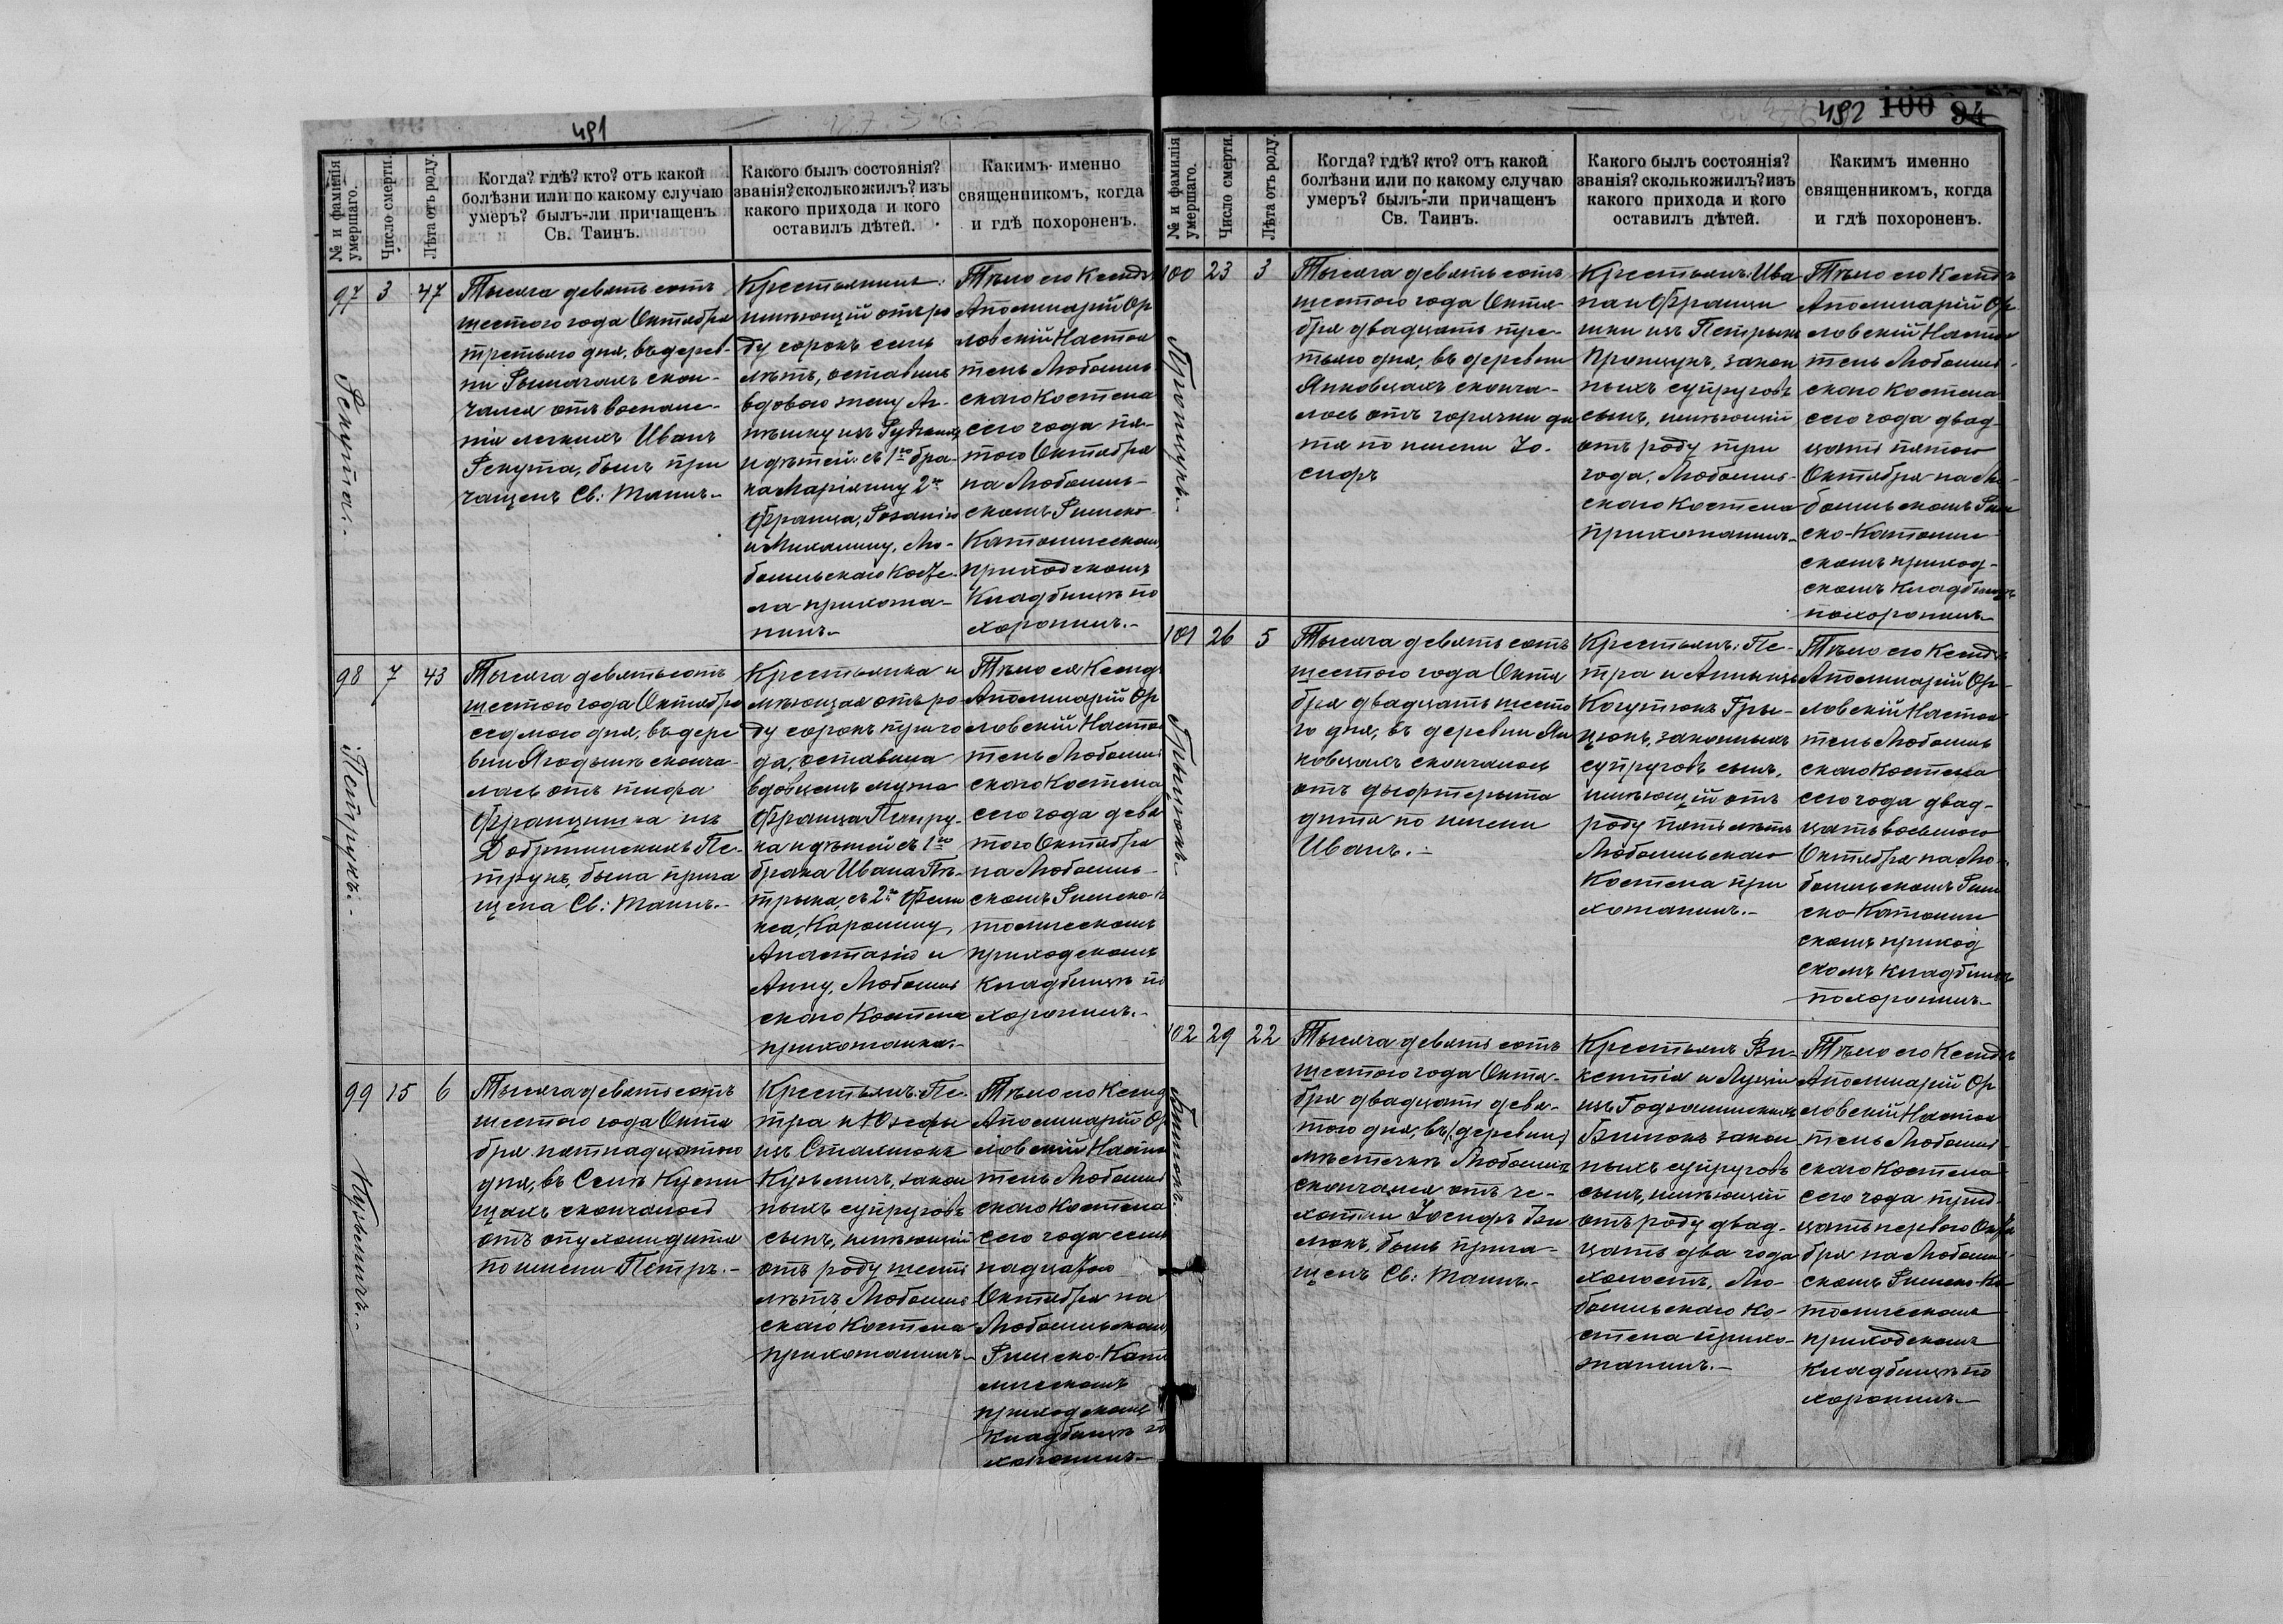 491
№ и фамилія умершаго.
Число смерти.
Лѣта отъ роду.
Когда? гдѣ? кто? отъ какой
болѣзни или по какому случаю
умеръ? былъ-ли причащенъ
Св. Таинъ.
Какого былъ состоянія?
званія? сколько жилъ? изъ
какого прихода и кого
оставилъ дѣтей.
Какимъ именно
священникомъ, когда
и гдѣ похороненъ.
97
Рекута.
3
47
Тысяча девятьсотъ
шестого года Октября
третьяго дня, въ дерев-
ни Рымачахъ скон-
чался отъ воспале-
нія легкихъ Иванъ
Рекута, былъ при
чащенъ Св: Таинъ.-
Крестьянинъ:
имѣющій отъ ро
ду сорокъ семь
лѣтъ, оставилъ
вдовою жену Аг-
нѣшку изъ
и дѣтей съ 1го бра-
ка Маріянну 2го
Франца, Розалію
и Михалину, Лю-
бомльскаго Косте
ла прихожа-
нинъ.-
Тѣло его Ксендзъ
Аполинарій Ор
ловскій Настоя
тель Любомль
скаго Костела
сего года пя-
того Октября
на Любомль-
скомъ Римско-
Католическомъ
приходскомъ
Кладбищѣ по
хоронилъ.-
98
Петрукъ.-
7
43
Тысяча девятьсотъ
шестого года Октября
седмого дня, въ дере
вни Ягодинѣ сконча
лась отъ тифа
Францишка изъ
Добрятинскихъ Пе-
трукъ, была прича
щена Св: Таинъ.-
Крестьянка и
мѣющая отъ ро
ду сорокъ три го
да, оставила
вдовцемъ мужа
Франца Петру-
ка и дѣтей съ 1го
брака Ивана Пе-
трука, съ 2го Фели
кса, Каролину,
Анастазію и
Анну, Любомль
скаго Костела
прихожанка.-
Тѣло ея Ксендзъ
Аполинарій Ор
ловскій Настоя
тель Любомль
скаго Костела
сего года девя
того Октября
на Любомль-
скомъ Римско-Ка
толическомъ
приходскомъ
кладбищѣ по
хоронилъ.-
99
Кузьмичъ.-
15
6
Тысяча девятьсотъ
шестого года Октя
бря пятнадцатого
дня, въ Селѣ Кусни
щахъ скончалось
отъ опухоли дитя
по имени Петръ.-
Крестьянъ: Пе-
тра и Юзефы
изъ Сталюкъ
Кузьмичъ, закон
ныхъ супруговъ
сынъ, имѣющій
отъ роду шесть
лѣтъ, Любомль
скаго Костела
прихожанинъ.-
Тѣло его Ксендзъ
Аполинарій Ор
ловскій Настоя
тель Любомль
скаго Костела
сего года семь
надцатого
Октября на
Любомльскомъ
Римско-Като
лическомъ
приходскомъ
Кладбищѣ по
хоронилъ.-
492 100 94
№ и фамилія умершаго.
Число смерти.
Лѣта отъ роду.
Когда? гдѣ? кто? отъ какой
болѣзни или по какому случаю
умеръ? былъ-ли причащенъ
Св. Таинъ.
Какого былъ состоянія?
званія? сколько жилъ? изъ
какого прихода и кого
оставилъ дѣтей.
Какимъ именно
священникомъ, когда
и гдѣ похороненъ.
100
Пронцукъ.-
23
3
Тысяча девятьсотъ
шестого года Октя-
бря двадцать тре-
тьяго дня, въ деревни
Янковцахъ сконча-
лось отъ горячки ди
тя по имени Іо-
сифъ
Крестьянъ: Ива
на и Францы
шки изъ Петрыкъ
Пронцукъ, закон
ныхъ супруговъ
сынъ, имѣющій
отъ роду три
года, Любомль-
скаго Костела
прихожанинъ.-
Тѣло его Ксендзъ
Аполинарій Ор
ловскій Настоя
тель Любомль-
скаго Костела
сего года двад-
цать пятого
Октября на Лю-
бомльскомъ Рим
ско-Католиче
скомъ приход-
скомъ кладбищѣ
похоронилъ.-
101
Грыцюкъ.-
26
5
Тысяча девятьсотъ
шестого года Октя
бря двадцать шесто
го дня, въ деревни Ян
ковцахъ скончалось
отъ дыфтерыта
дитя по имени
Иванъ.-
Крестьянъ: Пе-
тра и Анны изъ
Когутюкъ Гры-
цюкъ, законныхъ
супруговъ сынъ,
имѣющій отъ
роду пять лѣтъ
Любомльскаго
Костела при
хожанинъ.-
Тѣло его Ксендзъ
Аполинарій Ор-
ловскій Настоя
тель Любомль
скаго Костела
сего года двад-
цать восьмого
Октября на Лю-
бомльскомъ Рим
ско-Католиче
скомъ приход
скомъ кладбищѣ
похоронилъ.-
102
29
22
Тысяча девятьсотъ
шестого года Октя-
бря двадцать девя-
того дня, въ (деревни)
мѣстечкѣ Любомлѣ
скончался отъ че-
хотки Іосифъ
былъ прича-
щенъ Св: Таинъ.-
Крестьянъ Ви-
кентія и Луціи
изъ
закон
ныхъ супруговъ
сынъ, имѣющій
отъ роду двад-
цать два года
холостъ, Лю-
бомльскаго Ко-
стела прихо-
жанинъ.-
Тѣло его Ксендзъ
Аполинарій Ор
ловскій Настоя
тель Любомль-
скаго Костела
сего года трид-
цать первого Октя
бря на Любомль-
скомъ Римско-Ка
толическомъ
приходскомъ
кладбищѣ по
хоронилъ.-